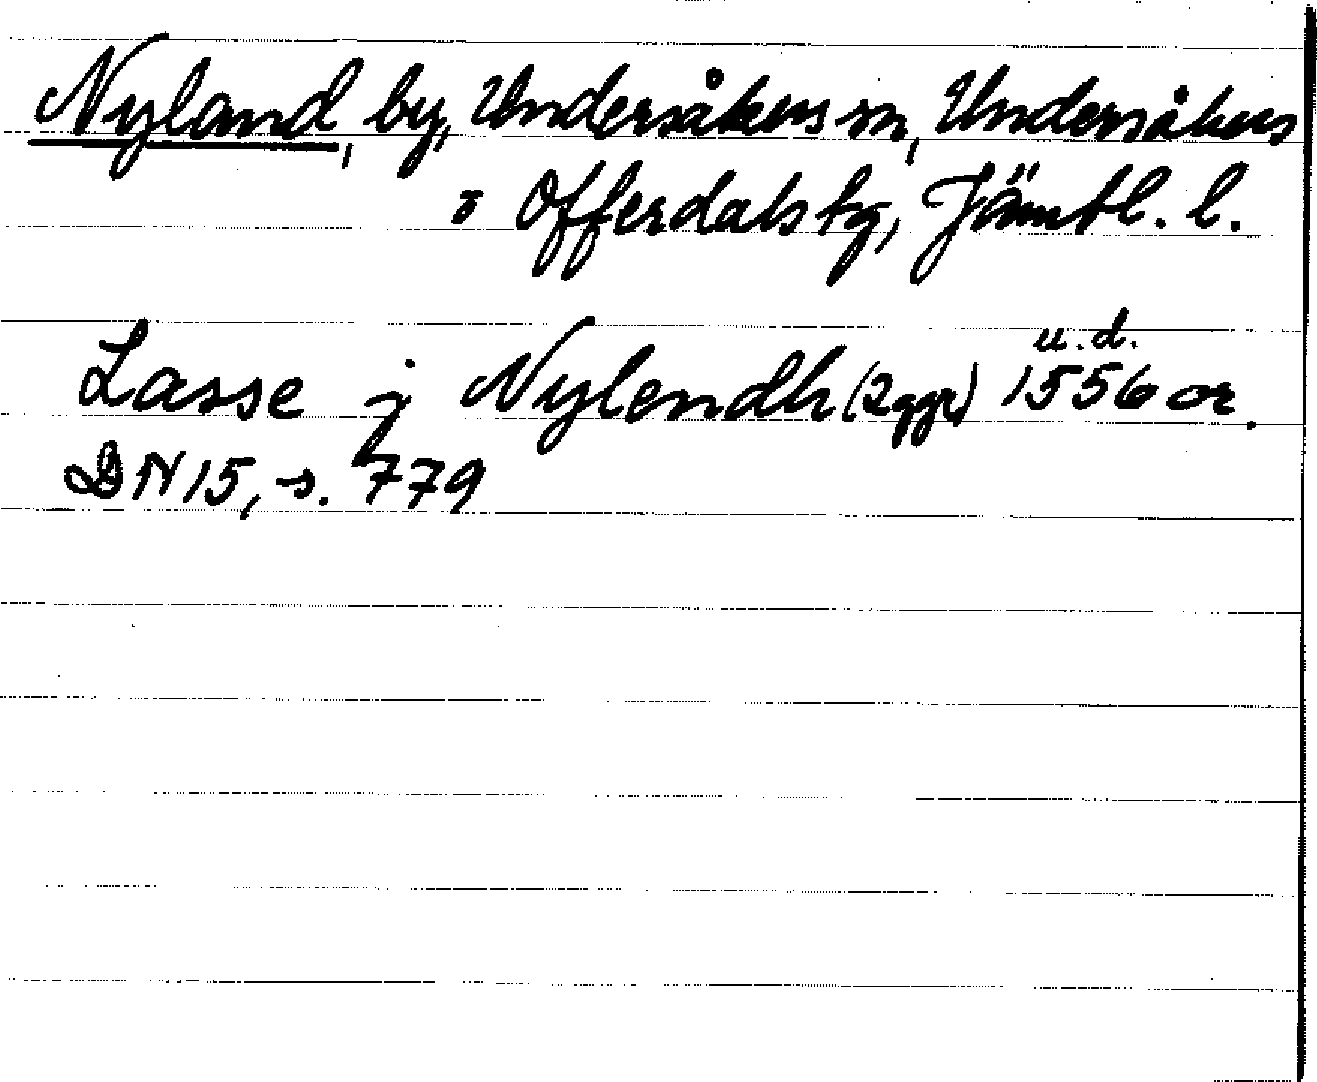 Nyland, by, Undersåkers sn, Undersåkers
o Offerdals tg, Jämtl. l.
u.d.
Lasse j Nylendh (2ggr) 1556 or.
DN 15, s. 779